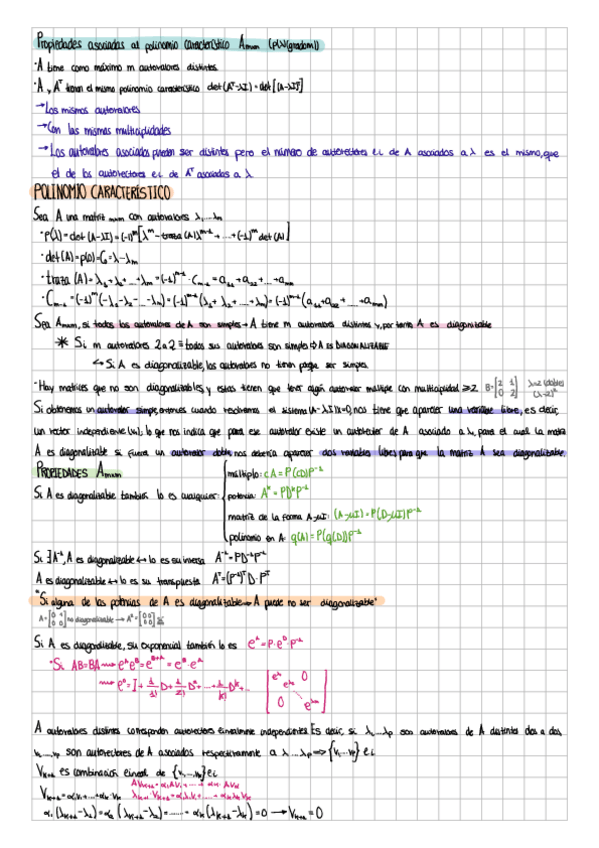 Propiedades asociadas al polinomio característico Amxm (p(λ)(grado m))
·A tiene como máximo m autovalores distintos.
·A, Aᵀ tienen el mismo polinomio característico det(Aᵀ-λI)=det[(A-λI)ᵀ]
→Los mismos autovalores
→Con las mismas multiplicidades
→Los autovalores asociados pueden ser distintos pero el número de autovectores e.i. de A asociados a λ es el mismo, que
el de los autovectores e.i. de Aᵀ asociados a λ.
POLINOMIO CARACTERÍSTICO
Sea A una matriz mxm con autovalores λ₁...λm
·p(λ)=det(A-λI)=(-1)ᵐ[λᵐ-traza(A)λᵐ⁻¹+...+(-1)ᵐdet(A)]
·det(A)=p(0)=C₀=λ₁·λm
·traza(A)=λ₁+λ₂+...+λm=(-1)ᵐ⁻¹·Cm-1=a₁₁+a₂₂+...+amm
·Cm-1=(-1)ᵐ(-λ₁-λ₂-...-λm)=(-1)ᵐ⁻¹(λ₁+λ₂+...+λm)=(-1)ᵐ⁻¹(a₁₁+a₂₂+...+amm)
Sea Amxm, si todos los autovalores de A son simples→A tiene m autovalores distintos y, por tanto A es diagonalizable
* Si m autovalores 2 a 2 ≡ todos sus autovalores son simples⇒A es DIAGONALIZABLE
↪Si A es diagonalizable, los autovalores no tienen porque ser simples.
·Hay matrices que no son diagonalizables, y estas tienen que tener algún autovalor múltiple con multiplicidad ≥2. B=[2 1; 0 2] λ=2 (doble) (λ-2)²
Si obtenemos un autovalor simple, entonces cuando resolvemos el sistema (A-λI)x=0, nos tiene que aparecer una variable libre, es decir,
un vector independiente; lo que nos indica que para ese autovalor existe un autovector de A asociado a λ, para el cual la matriz
A es diagonalizable si fuera un autovalor doble, nos debería aparecer dos variables libres para que la matriz A sea diagonalizable.
PROPIEDADES Amxm
múltiplo: cA=P(cD)P⁻¹
Si A es diagonalizable también lo es cualquier: potencia: Aᵏ=PDᵏP⁻¹
matriz de la forma A-μI: (A-μI)=P(D-μI)P⁻¹
polinomio en A: q(A)=P(q(D))P⁻¹
Si ∃A⁻¹, A es diagonalizable↔lo es su inversa A⁻¹=PD⁻¹P⁻¹
A es diagonalizable↔lo es su transpuesta Aᵀ=(P⁻¹)ᵀD·Pᵀ
"Si alguna de las potencias de A es diagonalizable→A puede no ser diagonalizable"
A=[0 1; 0 0] no diagonalizable→A²=[0 0; 0 0] Sí
Si A es diagonalizable, su exponencial también lo es eᴬ=P·eᴰ·P⁻¹
*Si AB=BA⟿eᴬeᴮ=eᴮ⁺ᴬ=eᴮ·eᴬ
⟿eᴰ=I+1/1! D+1/2! D²+...+1/k! Dᵏ+... [eλ₁ 0 eλ₂ 0 eλm]
A autovalores distintos corresponden autovectores linealmente independientes. Es decir, si λ₁...λp son autovalores de A distintos dos a dos
v₁,...,vp son autovectores de A asociados respectivamente a λ₁...λp⇒{v₁...vp} e.i
Vk+1 es combinación lineal de {v₁...vp} e.i
AVk+1=α₁AV₁+...+αk·AVk
Vk+1=α₁V₁+...+αk·Vk λk+1·Vk+1=α₁λ₁V₁+...+αkλkVk
α₁(λk+1-λ₁)=α₂(λk+1-λ₂)=......=αk(λk+1-λk)=0→Vk+1=0